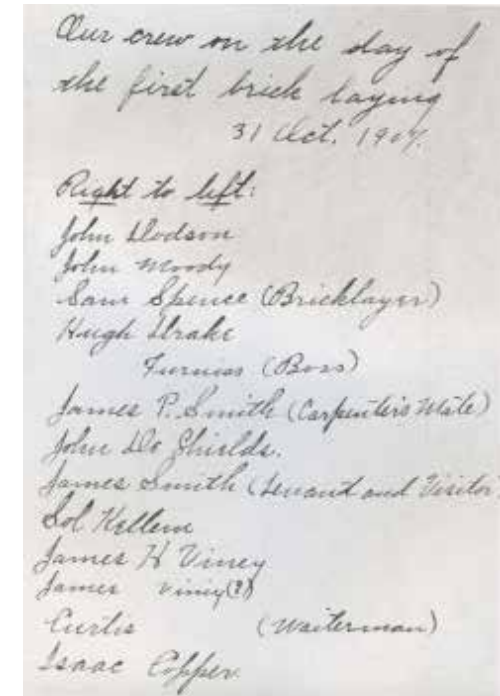 Our crew on the day of
the first brick laying
31 Oct. 1907.
Right to left:
John Dodson
John Moody
Sam Spence (Bricklayer)
Hugh Drake
Furniss (Boss)
James P. Smith (Carpenter's Mate)
John De Shields.
James Smith (Tenant and Visitor
Sol Kellem
James H Viney
James Viney(?)
Curtis (Waiterman)
Isaac Copper.